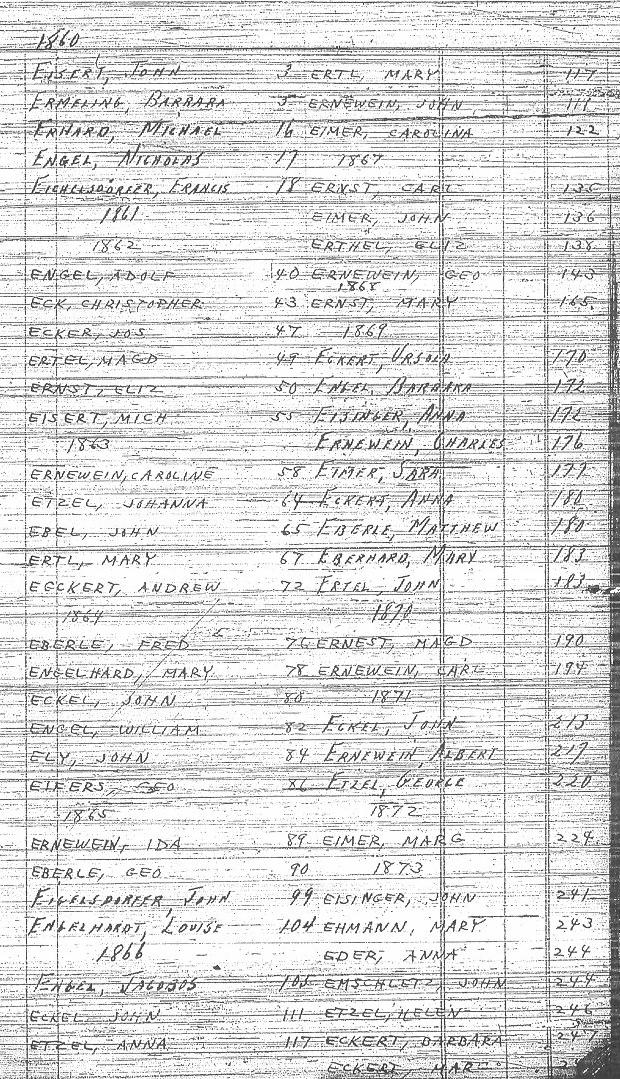 1860
EISERT, JOHN 3 ERTL, MARY 117
ERMELING, BARBARA 5 ERNEWEIN, JOHN 119
ERHARD, MICHAEL 16 EIMER, CAROLINA 122
ENGEL, NICHOLAS 17 1867
EICHELSDORFER, FRANCIS 18 ERNST, CARL 135
1861 EIMER, JOHN 136
1862 ERTHEL, ELIZ 138
ENGEL, ADOLF 40 ERNEWEIN, GEO 143
1868
ECK, CHRISTOPHER 43 ERNST, MARY 165
ECKER, JOS 47 1869
ERTEL, MAGD 49 ECKERT, URSULA 170
ERNST, ELIZ 50 ENGEL, BARBARA 172
EISERT, MICH 55 EISINGER, ANNA 172
1863 ERNEWEIN, CHARLES 176
ERNEWEIN, CAROLINE 58 EIMER, SARA 177
ETZEL, JOHANNA 64 ECKERT, ANNA 180
EBEL, JOHN 65 EBERLE, MATTHEW 180
ERTL, MARY 67 EBERHARD, MARY 183
EGCKERT, ANDREW 72 ERTEL, JOHN 183
1864 1870
EBERLE, FRED 76 ERNEST, MAGD 190
ENGELHARD, MARY 78 ERNEWEIN, CARL 194
ECKEL, JOHN 80 1871
ENGEL, WILLIAM 82 ECKEL, JOHN 213
ELY, JOHN 84 ERNEWEIN, ALBERT 217
EIFERS, GEO 86 ETZEL, GEORGE 220
1865 1872
ERNEWEIN, IDA 89 EIMER, MARG 224
EBERLE, GEO 90 1873
EIGELSDORFER, JOHN 99 EISINGER, JOHN 241
ENGELHARDT, LOUISE 104 EHMANN, MARY 243
1866 EDER, ANNA 244
ENGEL, JACOBOS 105 EMSCHLETZ, JOHN 244
ECKEL, JOHN 111 ETZEL, HELEN 246
ETZEL, ANNA 117 ECKERT, BARBARA 247
ECKERT, MARG